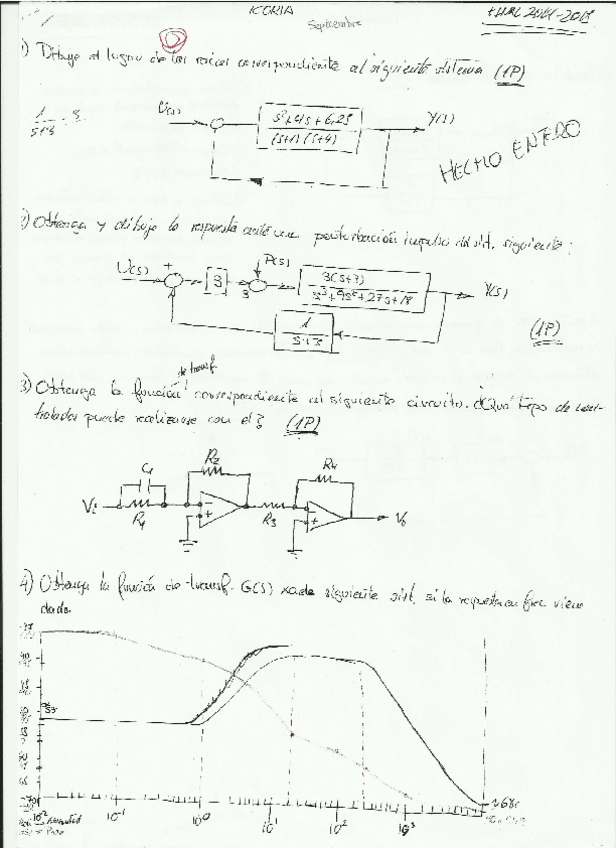 TEORIA
Septiembre
1) Dibuje el lugar de las raices correspondiente al siguiente sistema (1P)
U(s)
s²+4s+6,25
(s+1)(s+4)
Y(s)
1
s+3
HECHO ENTERO
2) Obtenga y dibuje la respuesta ante una perturbación impulso del sist. siguiente:
U(s)
+
3
P(s)
3(s+3)
s³+9s²+27s+18
Y(s)
1
s+3
(1P)
de transf.
3) Obtenga la función correspondiente al siguiente circuito. ¿Qué tipo de con-
trolador puede realizarse con el? (1P)
Vi
C1
R1
R2
R3
R4
Vo
4) Obtenga la función de transf. G(s) siguiente sist. si la respuesta en frec viene
dada
10⁻²
10⁻¹
10⁰
10¹
10²
10³